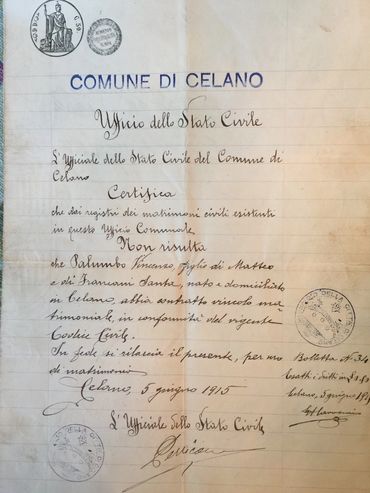 COMUNE DI CELANO
Ufficio dello Stato Civile
L'Ufficiale dello Stato Civile del Comune di
Celano
Certifica
che dai registri dei matrimoni civili esistenti
in questo Ufficio Comunale
Non risulta
che Palumbo Vincenzo, figlio di Matteo
e di Franciani Santa, nato e domiciliato
in Celano, abbia contratto vincolo ma-
trimoniale, in conformità del vigente
Codice Civile.
In fede si rilascia il presente, per uso
di matrimonio
Celano, 5 giugno 1915
L'Ufficiale dello Stato Civile
Bolletta N. 34
Esatti i diritti in
Celano, 5 giugno